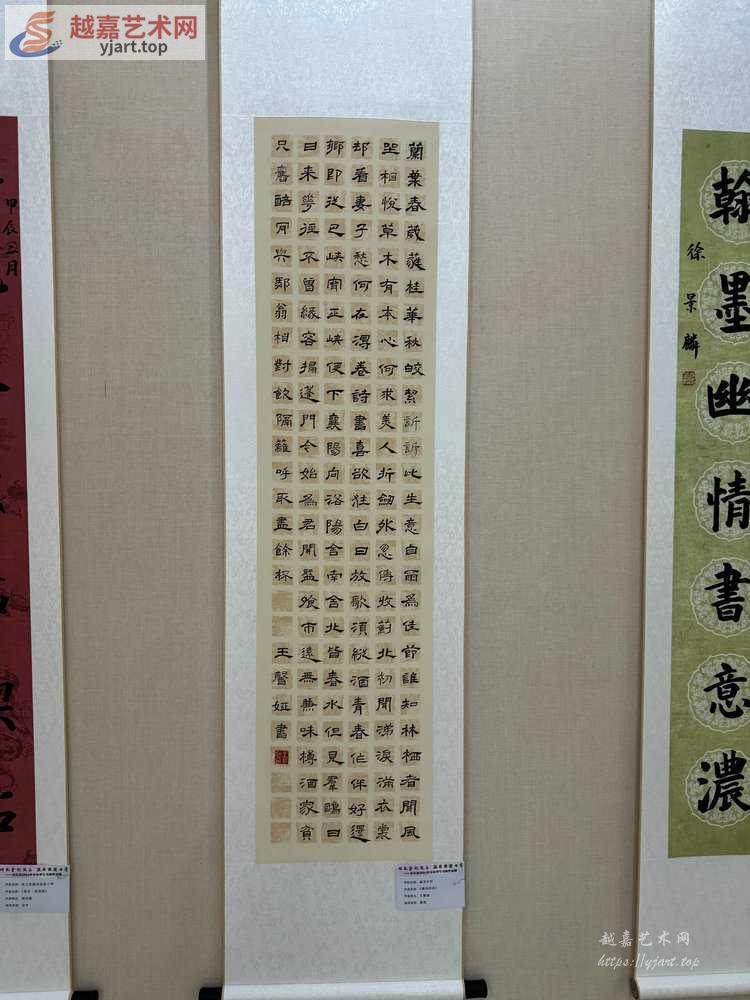 越嘉艺术网
yjart.top
蘭葉春葳蕤桂華秋皎絜訢訢此生意自爾為佳節誰知林栖者聞風
坐相悅草木有本心何求美人折劒外忽傳收薊北初聞涕淚滿衣裳
却看妻子愁何在漫卷詩書喜欲狂白日放歌須縱酒青春作伴好還
鄉即從巴峽穿巫峽便下襄陽向洛陽舍南舍北皆春水但見羣鷗日
日来華徑不曾緣客掃蓬門今始為君開盤飧市遠無兼味樽酒家貧
只舊醅肯與鄰翁相對飲隔籬呼取盡餘杯
王馨婭書
翰墨幽情書意濃
徐景麟
甲辰五月
越嘉艺术网
https://yjart.top